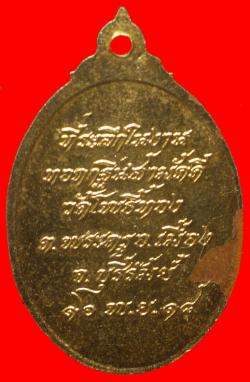 ที่ระลึกในงาน
ทอดกฐินสามัคคี
วัดโพธิ์ทอง
ต.พระครู อ.เมือง
จ.บุรีรัมย์
๑๖ พ.ย. ๑๘